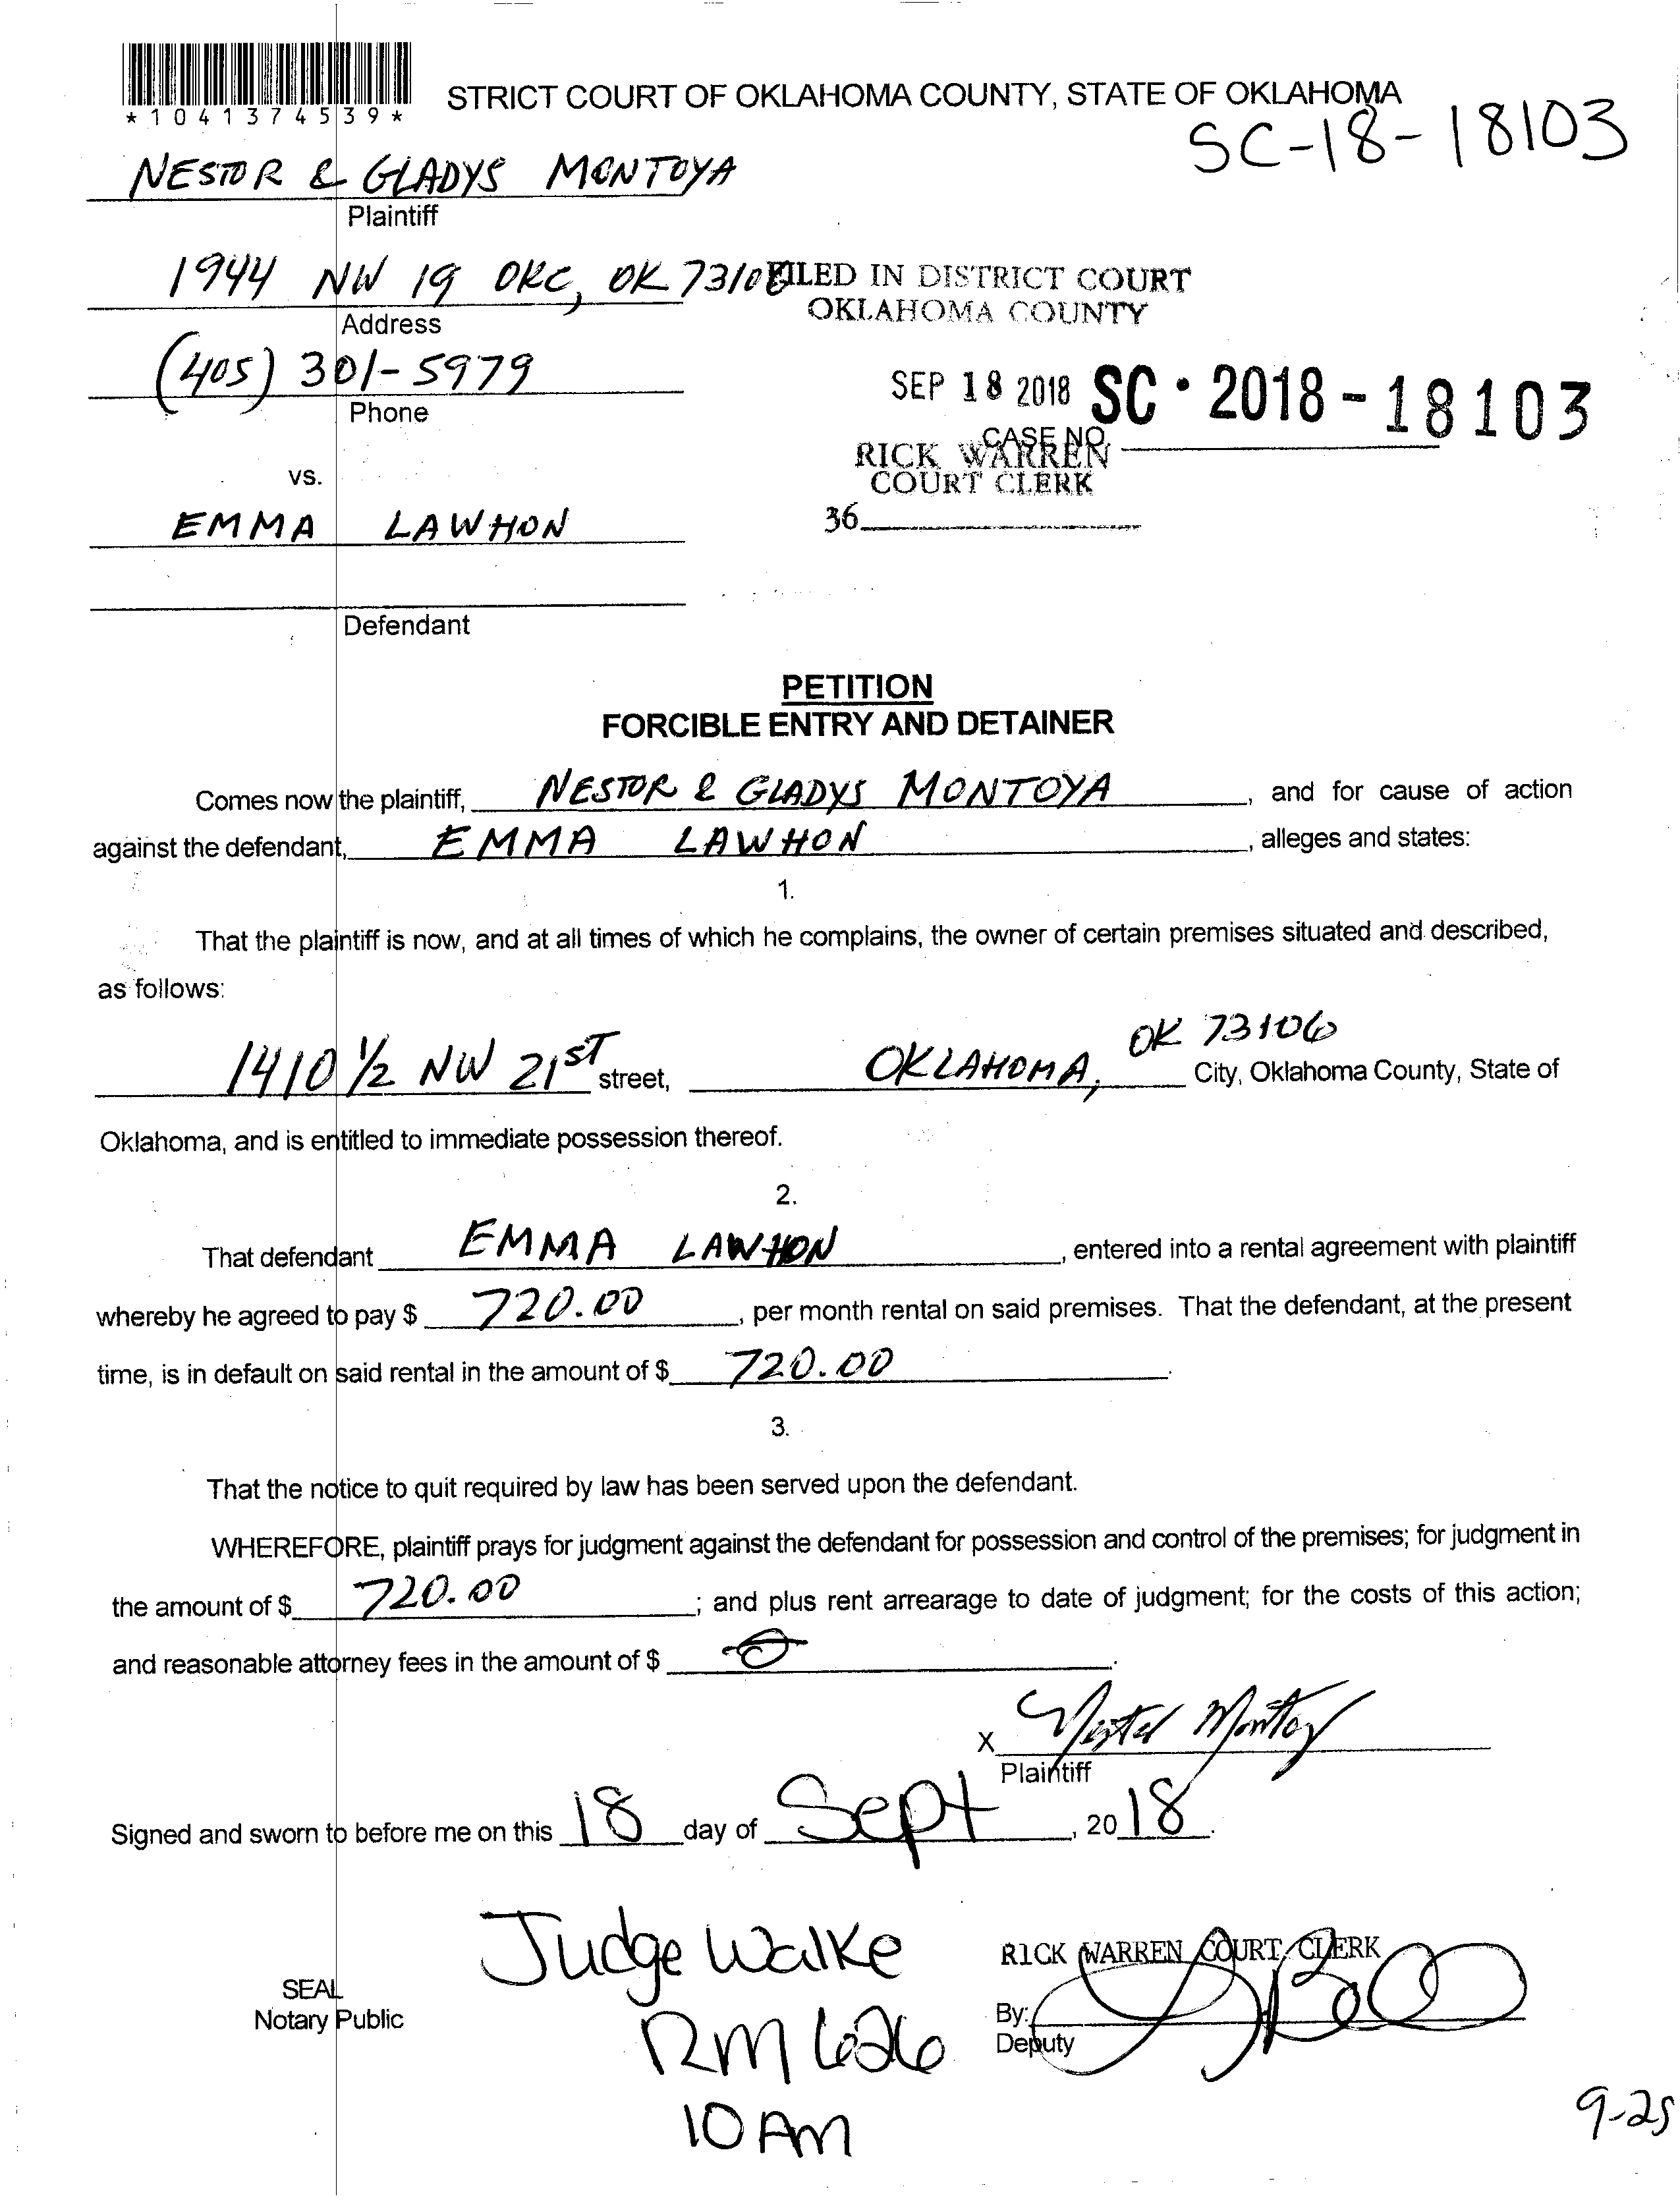 *1041374539*
STRICT COURT OF OKLAHOMA COUNTY, STATE OF OKLAHOMA
SC-18-18103
NESTOR & GLADYS MONTOYA
Plaintiff
1944 NW 19 OKC, OK 73106
FILED IN DISTRICT COURT
OKLAHOMA COUNTY
Address
(405) 301-5979
Phone
SEP 18 2018 SC·2018-18103
CASE NO.
RICK WARREN
COURT CLERK
vs.
36
EMMA LAWHON
Defendant
PETITION
FORCIBLE ENTRY AND DETAINER
Comes now the plaintiff, NESTOR & GLADYS MONTOYA, and for cause of action
against the defendant, EMMA LAWHON, alleges and states:
1.
That the plaintiff is now, and at all times of which he complains, the owner of certain premises situated and described,
as follows:
OK 73106
1410 1/2 NW 21ST street, OKLAHOMA, City, Oklahoma County, State of
Oklahoma, and is entitled to immediate possession thereof.
2.
That defendant EMMA LAWHON, entered into a rental agreement with plaintiff
whereby he agreed to pay $ 720.00, per month rental on said premises. That the defendant, at the present
time, is in default on said rental in the amount of $ 720.00.
3.
That the notice to quit required by law has been served upon the defendant.
WHEREFORE, plaintiff prays for judgment against the defendant for possession and control of the premises; for judgment in
the amount of $ 720.00; and plus rent arrearage to date of judgment; for the costs of this action;
and reasonable attorney fees in the amount of $ 0.
X Nestor Montoy
Plaintiff
Signed and sworn to before me on this 18 day of Sept, 2018.
Judge Walke
RICK WARREN COURT CLERK
SEAL
Notary Public
By:
Deputy
RM 626
10 AM
9-25